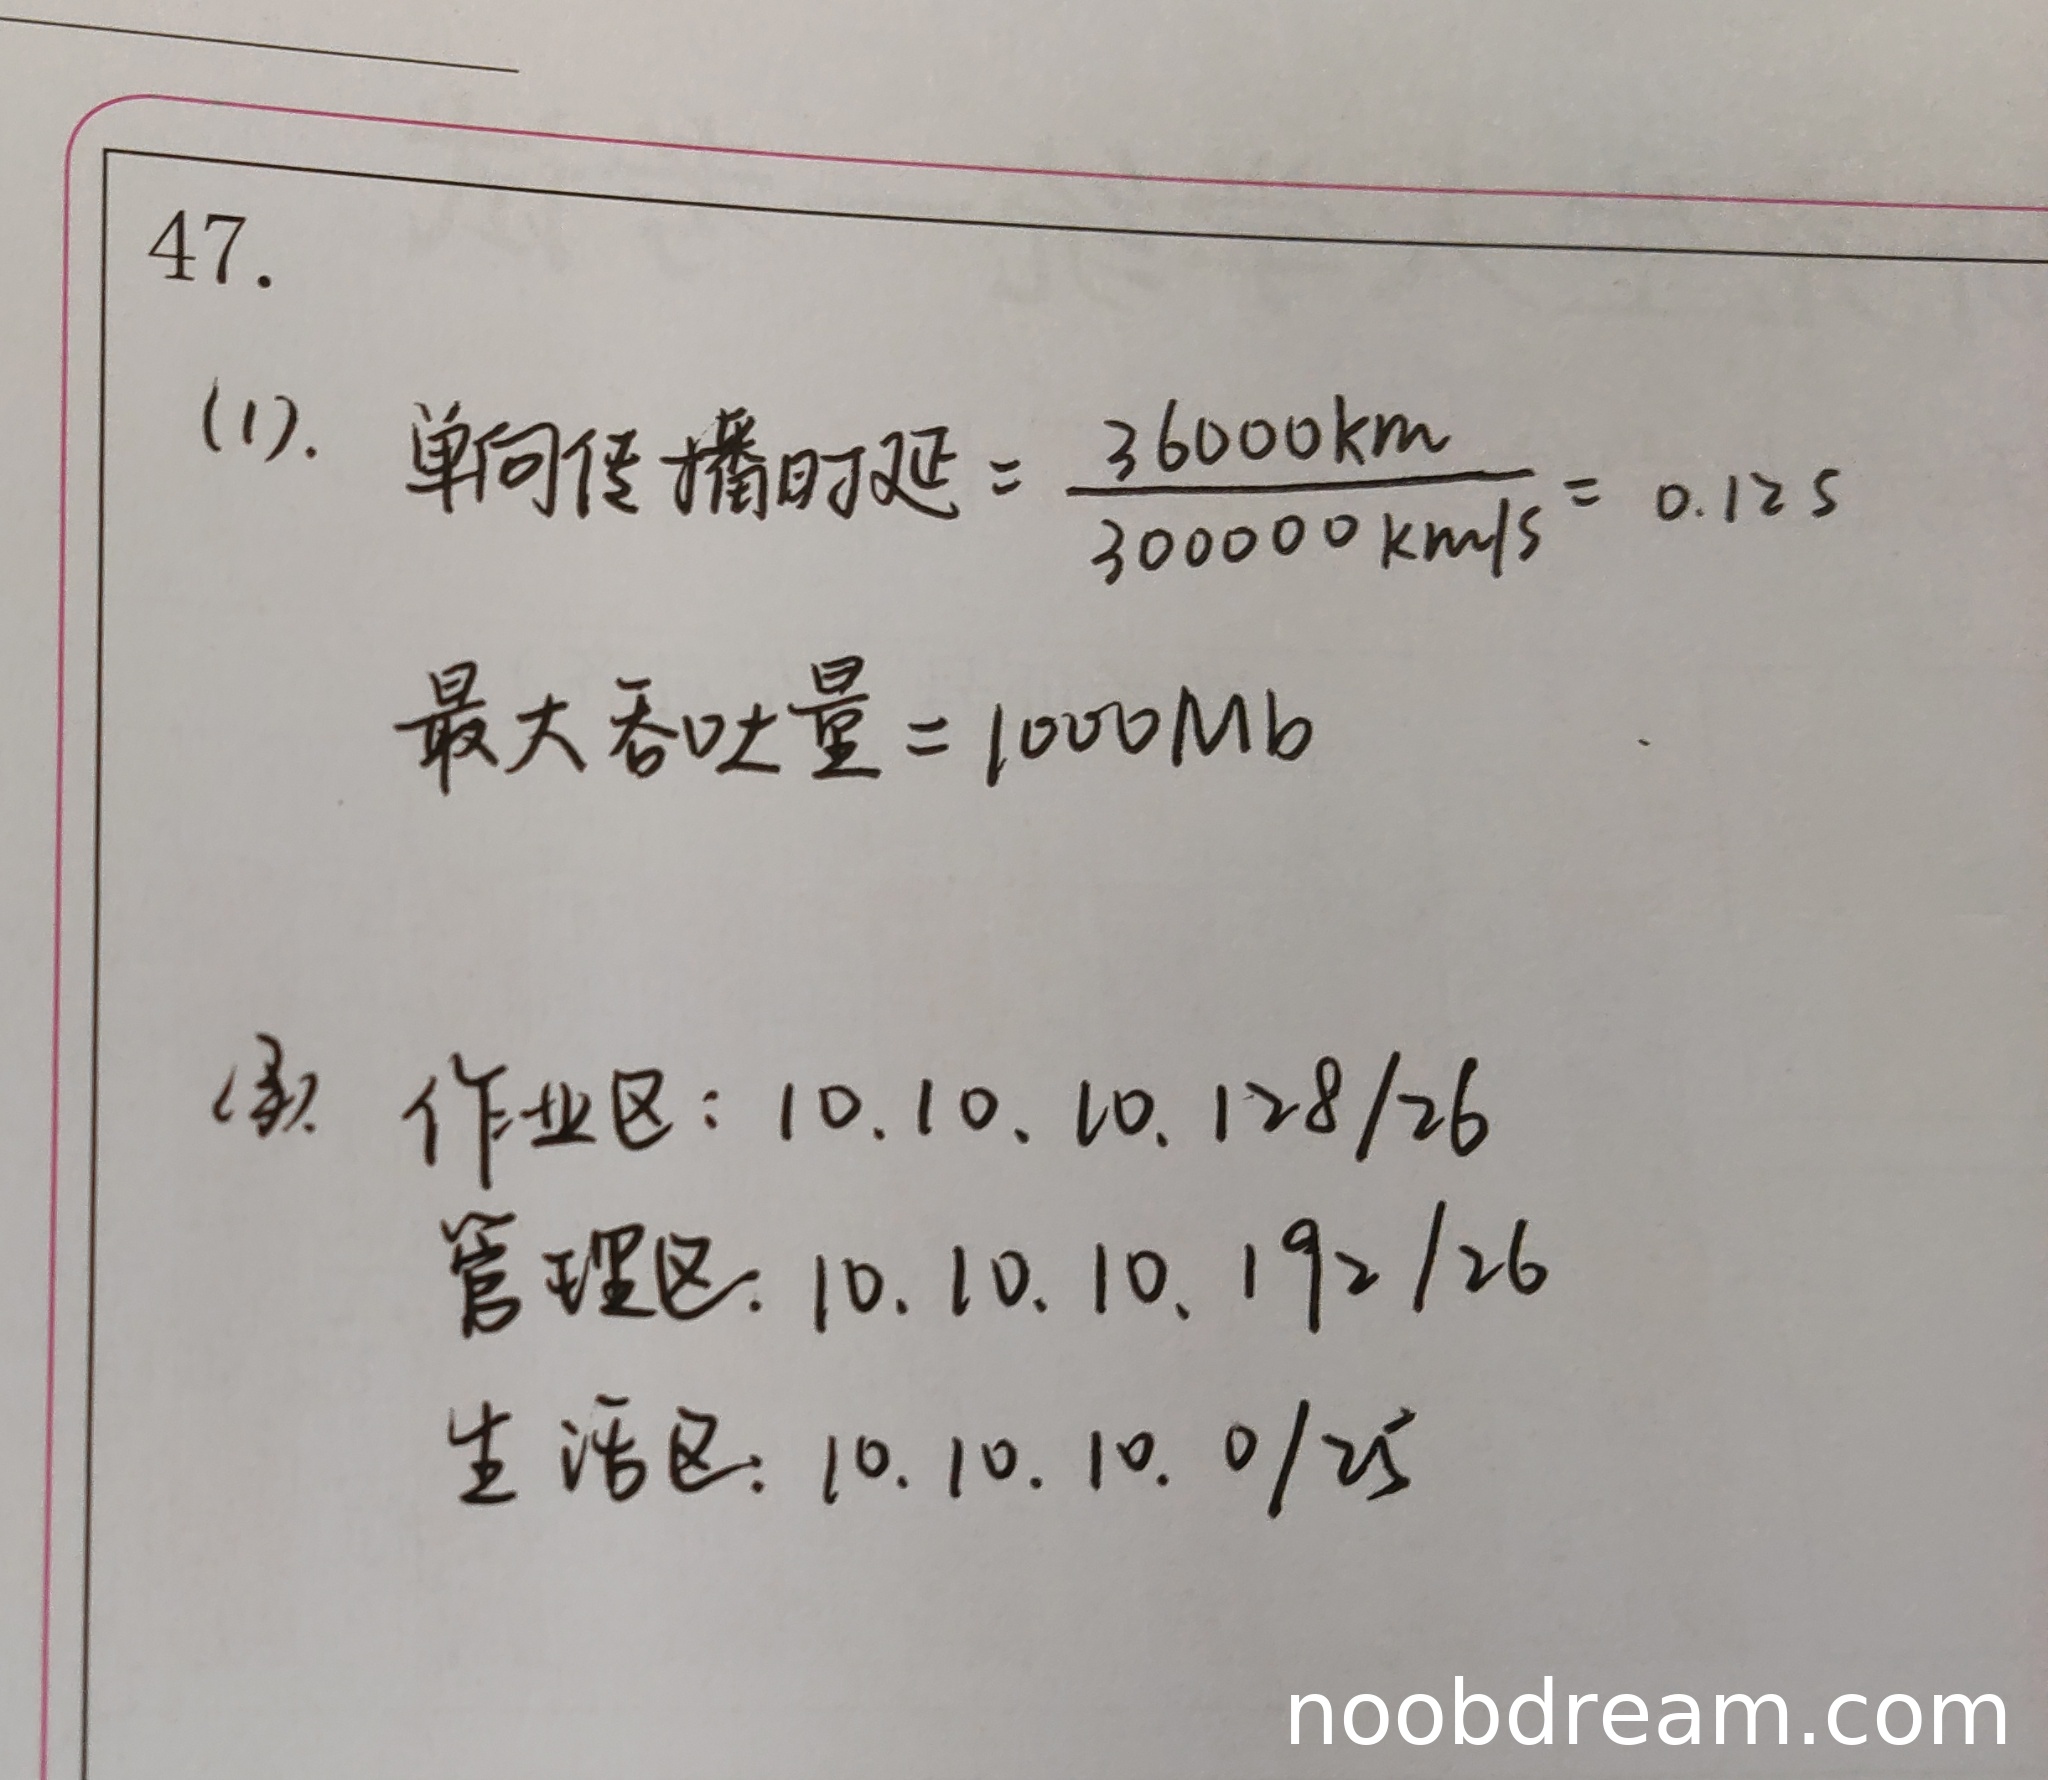 47.
(1). 单向传播时延 = 36000km / 300000km/s = 0.12s
最大吞吐量 = 1000Mb
作业区: 10.10.10.128/26
管理区: 10.10.10.192/26
生活区: 10.10.10.0/25
noobdream.com